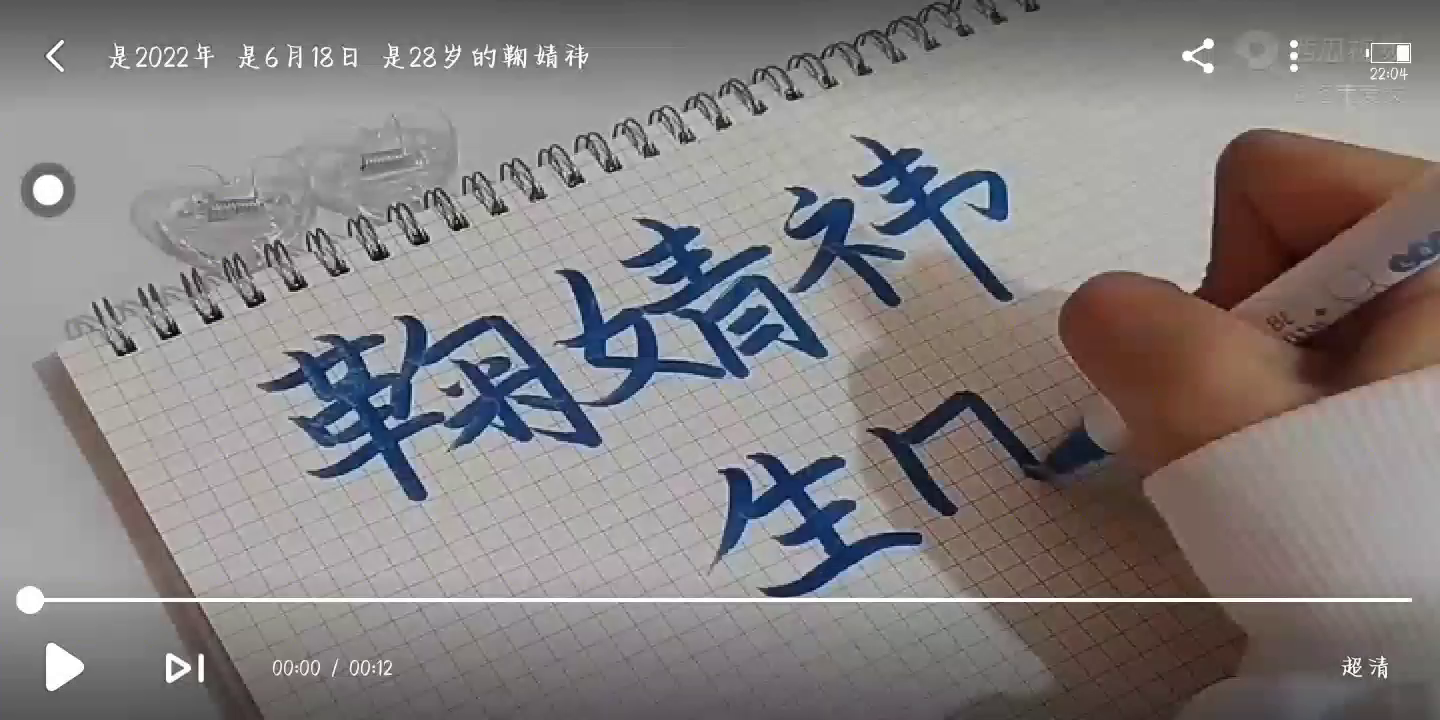 是2022年 是6月18日 是28岁的鞠婧祎
22:04
鞠婧祎
生
00:00 / 00:12
超清